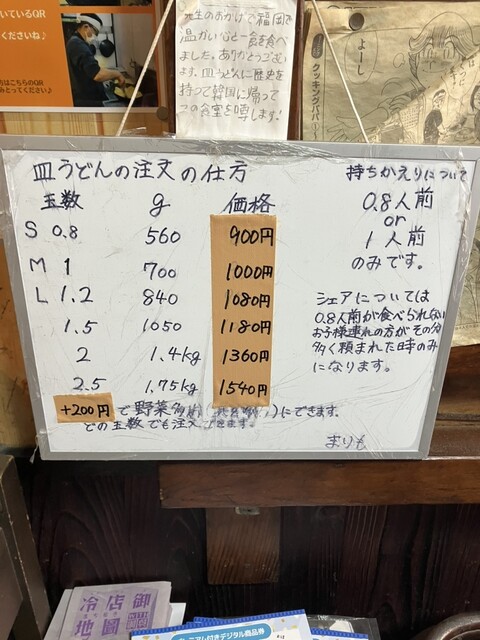 ているQR
ください♪
方はこちらのQR
みとってください♪
先生のおかげで福岡で
温かい心と一食を食べ
ました。ありがとうござい
ます。皿うどんに歴史を
持って韓国に帰って
この食堂を噂します！
よーし
クッキングパパ
皿うどんの注文の仕方
玉数 g 価格
S 0.8 560 900円
M 1 700 1000円
L 1.2 840 1080円
1.5 1050 1180円
2 1.4kg 1360円
2.5 1.75kg 1540円
+200円 で野菜多めにできます。
どの玉数でも注文できます。
持ちかえりについて
0.8人前
or
1人前
のみです。
シェアについては
0.8人前が食べられない
お子様連れの方がその分
多く頼まれた日時のみ
になります。
まりも
冷店御
地圖
プレミアム付きデジタル商品券